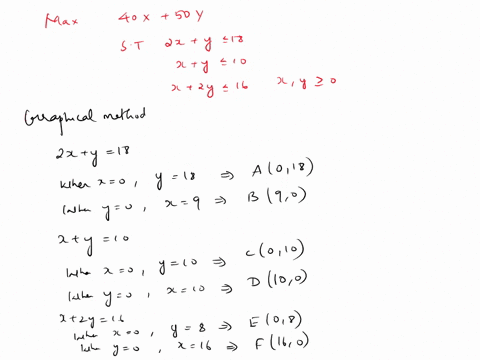 Max 40x + 50y
S.T 2x + y ≤ 18
x + y ≤ 10
x + 2y ≤ 16 x, y ≥ 0
Graphical method
2x + y = 18
When x=0, y = 18 ⇒ A (0,18)
When y=0, x = 9 ⇒ B (9,0)
x + y = 10
When x=0, y = 10 ⇒ C (0,10)
When y=0, x = 10 ⇒ D (10,0)
x + 2y = 16
When x=0, y = 8 ⇒ E (0,8)
When y=0, x = 16 ⇒ F (16,0)